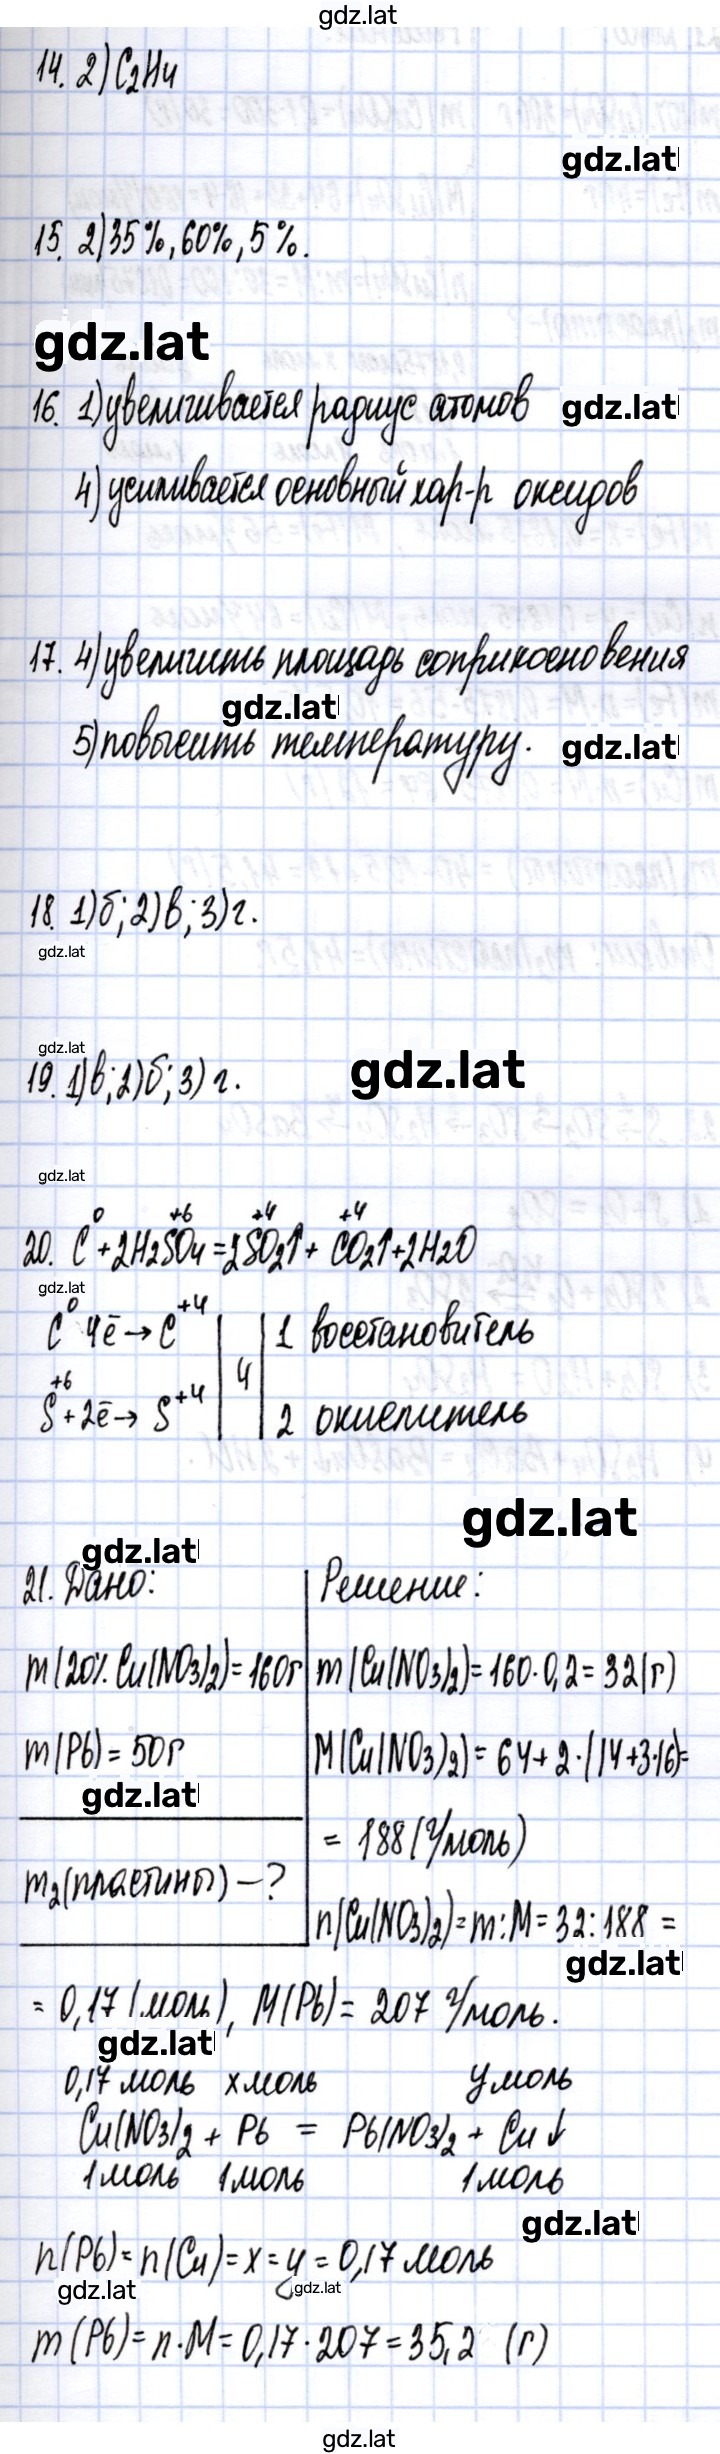 gdz.lat
14. 2) C₂H₄
gdz.lat
15. 2) 35%, 60%, 5%.
gdz.lat
16. 1) увеличивается радиус атомов
gdz.lat
4) усиливается основный хар-р оксидов
17. 4) увеличить площадь соприкосновения
gdz.lat
5) повысить температуру.
gdz.lat
18. 1) б; 2) в; 3) г.
gdz.lat
gdz.lat
19. 1) в; 2) б; 3) г.
gdz.lat
gdz.lat
0 +6 +4 +4
20. C + 2H₂SO₄ = 2SO₂↑ + CO₂↑ + 2H₂O
gdz.lat
C⁰ 4ē → C⁺⁴ | | 1 восстановитель
4
S⁺⁶ + 2ē → S⁺⁴ | | 2 окислитель
gdz.lat
gdz.lat
21. Дано: Решение:
m(20% Cu(NO₃)₂) = 160г m(Cu(NO₃)₂) = 160·0,2 = 32(г)
m(Pb) = 50г M(Cu(NO₃)₂) = 64 + 2·(14+3·16) =
gdz.lat
= 188 (г/моль)
m₂(пластины) – ?
n(Cu(NO₃)₂) = m:M = 32:188 =
gdz.lat
= 0,17 (моль), M(Pb) = 207 г/моль.
gdz.lat
0,17 моль x моль y моль
Cu(NO₃)₂ + Pb = Pb(NO₃)₂ + Cu↓
1 моль 1 моль 1 моль
gdz.lat
n(Pb) = n(Cu) = x = y = 0,17 моль
gdz.lat gdz.lat
m(Pb) = n·M = 0,17·207 = 35,2 (г)
gdz.lat